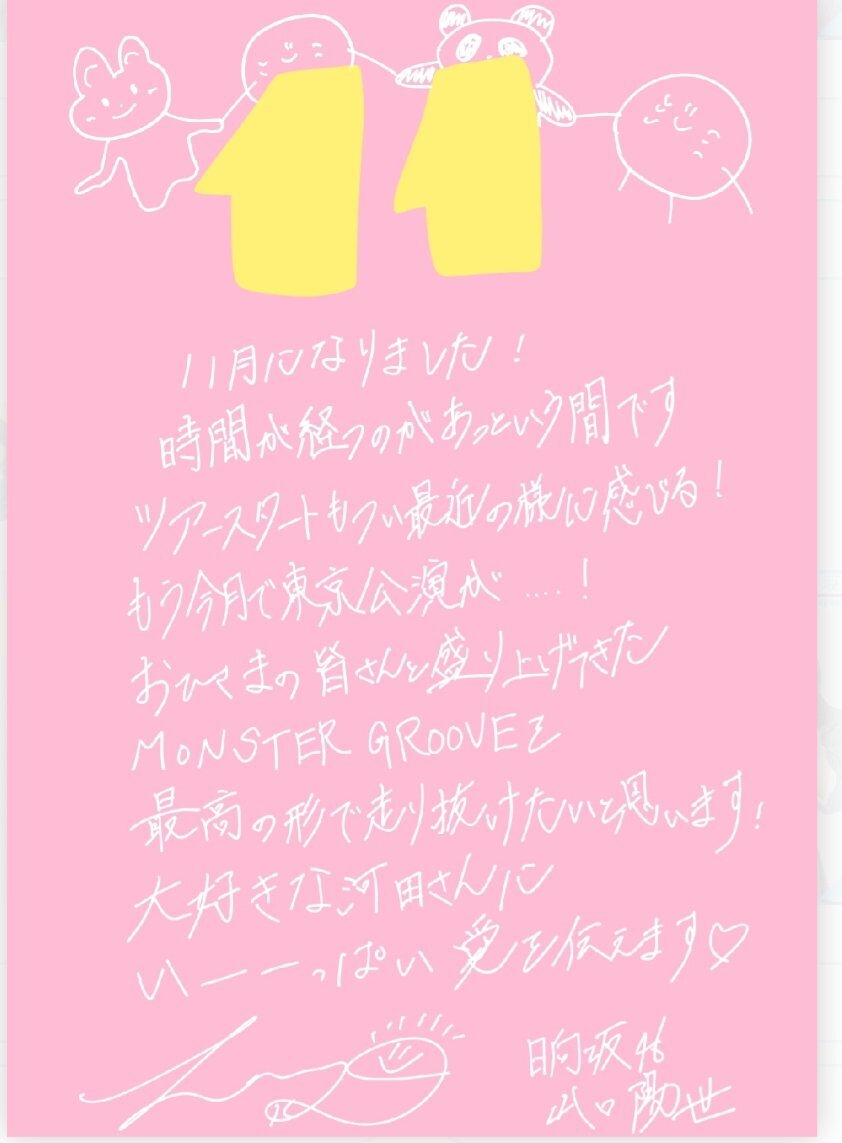 11
11月になりました！
時間が経つのがあっという間です
ツアースタートもつい最近の様に感じる！
もう今月で東京公演が....！
おひさまの皆さんと盛り上げてきた
MONSTER GROOVEを
最高の形で走り抜けたいと思います！
大好きな河田さんに
いーーっぱい愛を伝えます♡
日向坂46
山口陽世